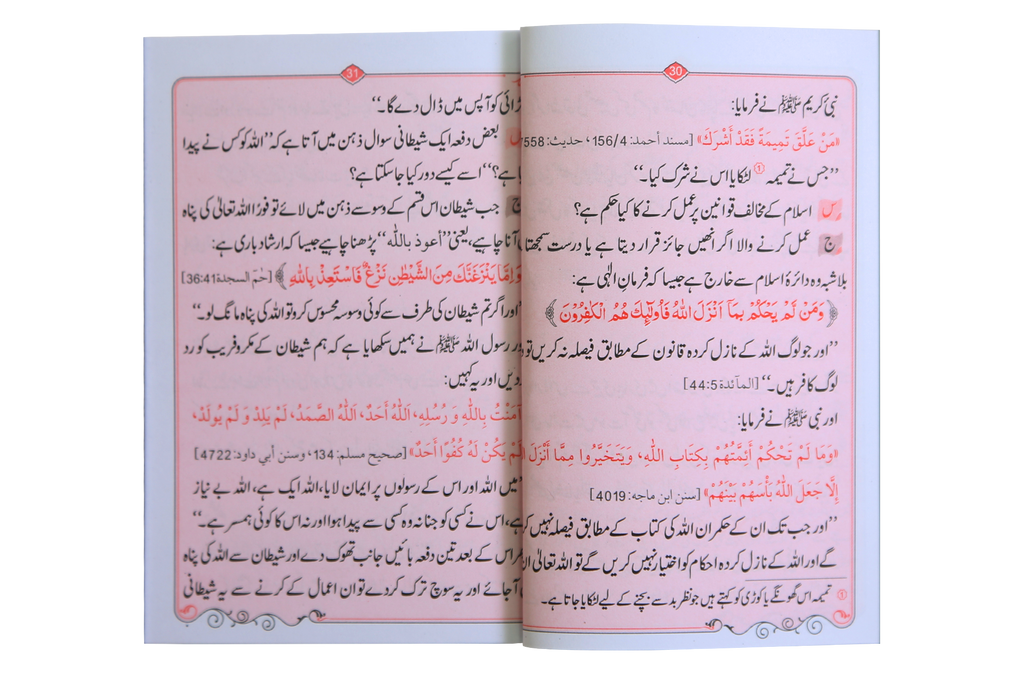 30
نبی کریم ﷺ نے فرمایا:
«مَنْ عَلَّقَ تَمِيمَةً فَقَدْ أَشْرَكَ» [مسند أحمد: 156/4، حدیث: 7558
’’جس نے تمیمہ ① لٹکایا اس نے شرک کیا۔‘‘
س اسلام کے مخالف قوانین پر عمل کرنے کا کیا حکم ہے؟
ج عمل کرنے والا اگر انھیں جائز قرار دیتا ہے یا درست سمجھتا
بلاشبہ وہ دائرۂ اسلام سے خارج ہے جیسا کہ فرمانِ الٰہی ہے:
﴿وَمَنْ لَّمْ يَحْكُمْ بِمَآ اَنْزَلَ اللّٰهُ فَاُولٰٓئِكَ هُمُ الْكٰفِرُوْنَ﴾
’’اور جو لوگ اللہ کے نازل کردہ قانون کے مطابق فیصلہ نہ کریں تو
لوگ کافر ہیں۔‘‘ [المآئدة 44:5]
اور نبی ﷺ نے فرمایا:
«وَمَا لَمْ تَحْكُمْ أَئِمَّتُهُمْ بِكِتَابِ اللّٰهِ، وَيَتَخَيَّرُوا مِمَّا أَنْزَلَ
إِلَّا جَعَلَ اللّٰهُ بَأْسَهُمْ بَيْنَهُمْ» [سنن ابن ماجه: 4019]
’’اور جب تک ان کے حکمران اللہ کی کتاب کے مطابق فیصلہ نہیں
گے اور اللہ کے نازل کردہ احکام کو اختیار نہیں کریں گے تو اللہ تعالیٰ ان
① تمیمہ اس گھونگے یا کوڑی کو کہتے ہیں جو نظر بد سے بچنے کے لیے لٹکایا جاتا ہے۔
31
کو آپس میں ڈال دے گا۔‘‘
س بعض دفعہ ایک شیطانی سوال ذہن میں آتا ہے کہ ’’اللہ کو کس نے پیدا
ہے؟‘‘ اسے کیسے دور کیا جا سکتا ہے؟
ج جب شیطان اس قسم کے وسوسے ذہن میں لائے تو فورًا اللہ تعالیٰ کی پناہ
آنا چاہیے، یعنی ’’أعوذ باللّٰه‘‘ پڑھنا چاہیے جیسا کہ ارشاد باری ہے:
وَاِمَّا يَنْزَغَنَّكَ مِنَ الشَّيْطٰنِ نَزْغٌ فَاسْتَعِذْ بِاللّٰهِ﴾ [حٰمٓ السجدة 36:41]
’’اور اگر تم شیطان کی طرف سے کوئی وسوسہ محسوس کرو تو اللہ کی پناہ مانگ لو۔‘‘
اور رسول اللہ ﷺ نے ہمیں سکھایا ہے کہ ہم شیطان کے مکر و فریب کو رد
دیں اور یہ کہیں:
آمَنْتُ بِاللّٰهِ وَ رُسُلِهِ، اَللّٰهُ أَحَدٌ، اَللّٰهُ الصَّمَدُ، لَمْ يَلِدْ وَ لَمْ يُولَدْ،
لَمْ يَكُنْ لَهُ كُفُوًا أَحَدٌ» [صحيح مسلم: 134، وسنن أبي داود: 4722]
’’میں اللہ اور اس کے رسولوں پر ایمان لایا، اللہ ایک ہے، اللہ بے نیاز
ہے، اس نے کسی کو جنا نہ وہ کسی سے پیدا ہوا اور نہ اس کا کوئی ہمسر ہے۔‘‘
اس کے بعد تین دفعہ بائیں جانب تھوک دے اور شیطان سے اللہ کی پناہ
آجائے اور یہ سوچ ترک کر دے تو ان اعمال کے کرنے سے یہ شیطانی